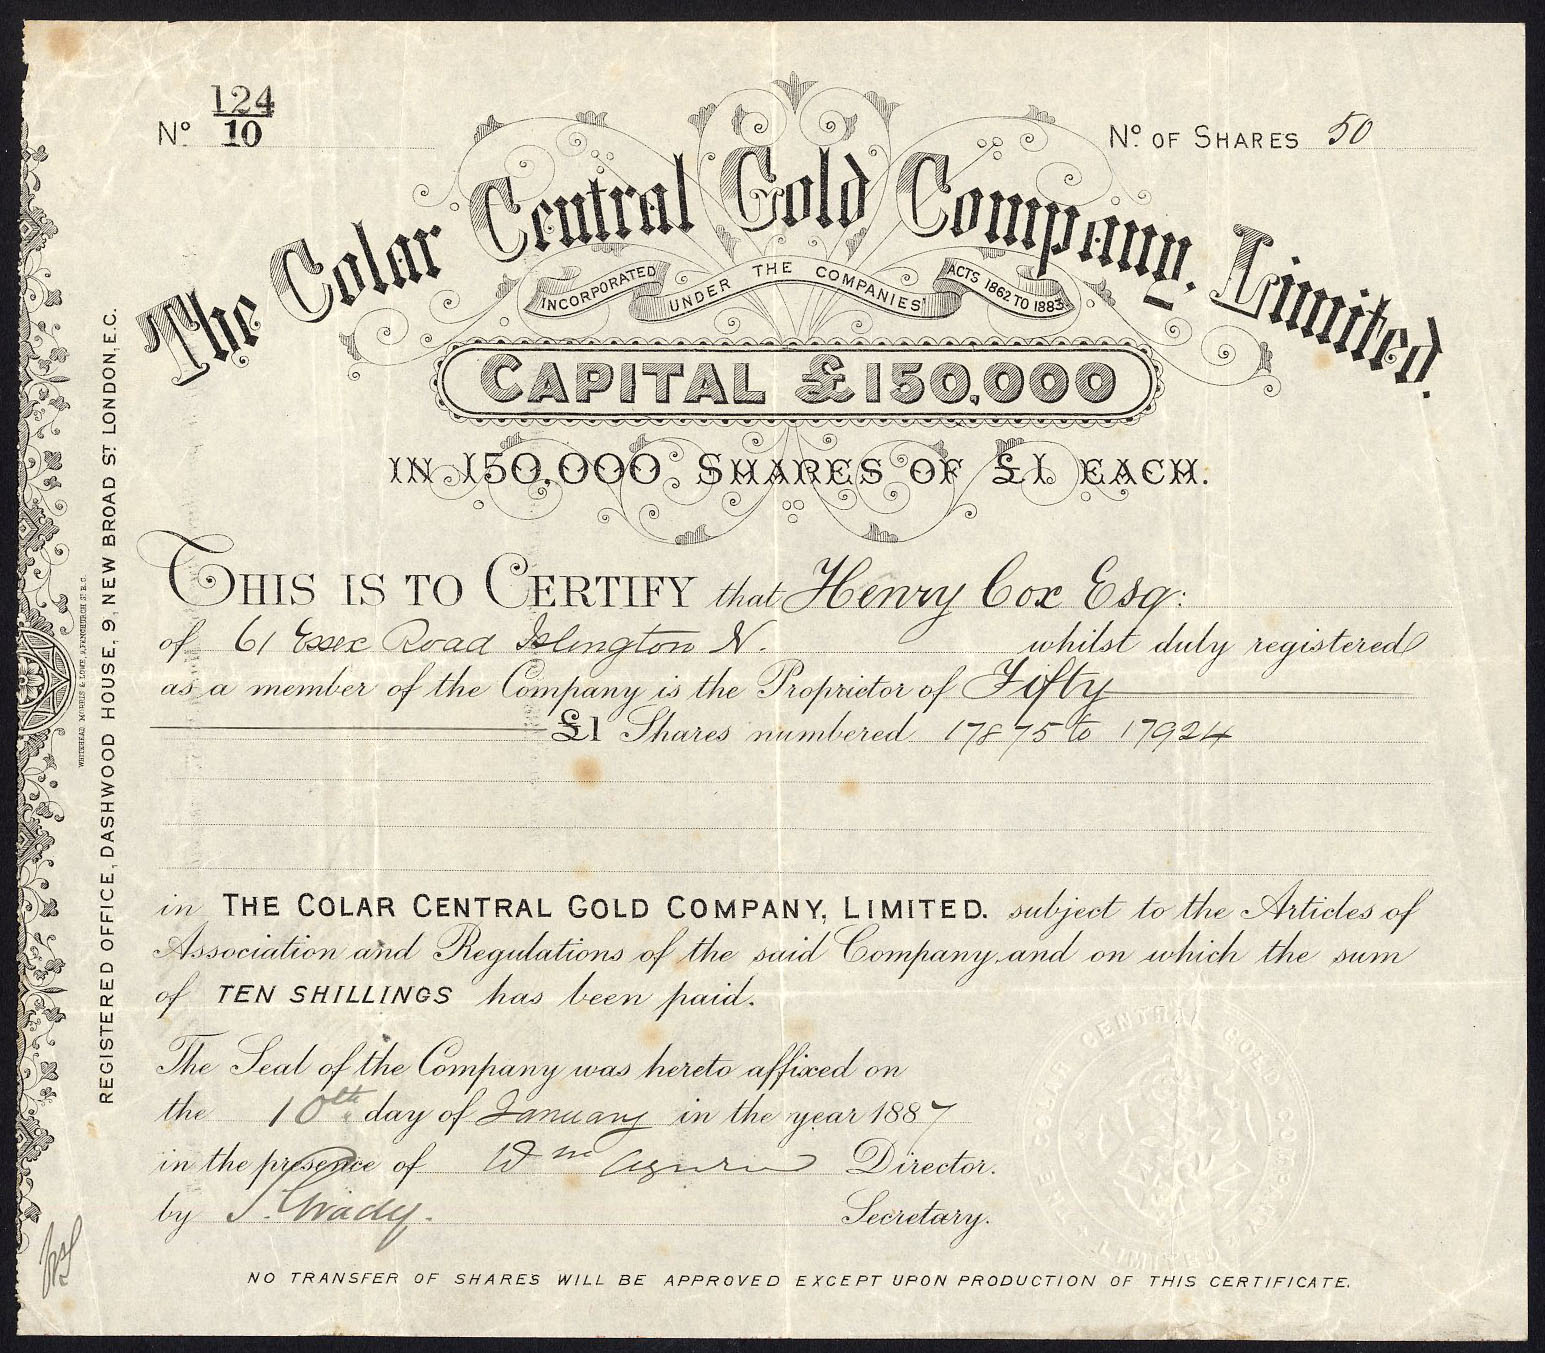 124
Nº 10
Nº. OF SHARES 50
The Colar Central Gold Company, Limited.
INCORPORATED UNDER THE COMPANIES ACTS 1862 TO 1883.
CAPITAL £150,000
IN 150,000 SHARES OF £1 EACH.
THIS IS TO CERTIFY that Henry Cox Esq:
of 61 Essex Road Islington N. whilst duly registered
as a member of the Company is the Proprietor of Fifty
£1 Shares numbered 17875 to 17924
in THE COLAR CENTRAL GOLD COMPANY, LIMITED. subject to the Articles of
Association and Regulations of the said Company, and on which the sum
of TEN SHILLINGS has been paid.
The Seal of the Company was hereto affixed on
the 10th day of January in the year 1887
in the presence of Wm Director.
by J. Grady. Secretary.
NO TRANSFER OF SHARES WILL BE APPROVED EXCEPT UPON PRODUCTION OF THIS CERTIFICATE.
REGISTERED OFFICE, DASHWOOD HOUSE, 9, NEW BROAD ST LONDON, E.C.
WHITEHEAD MORRIS & LOWE, 9, FENCHURCH ST E.C.
THE COLAR CENTRAL GOLD COMPANY LIMITED